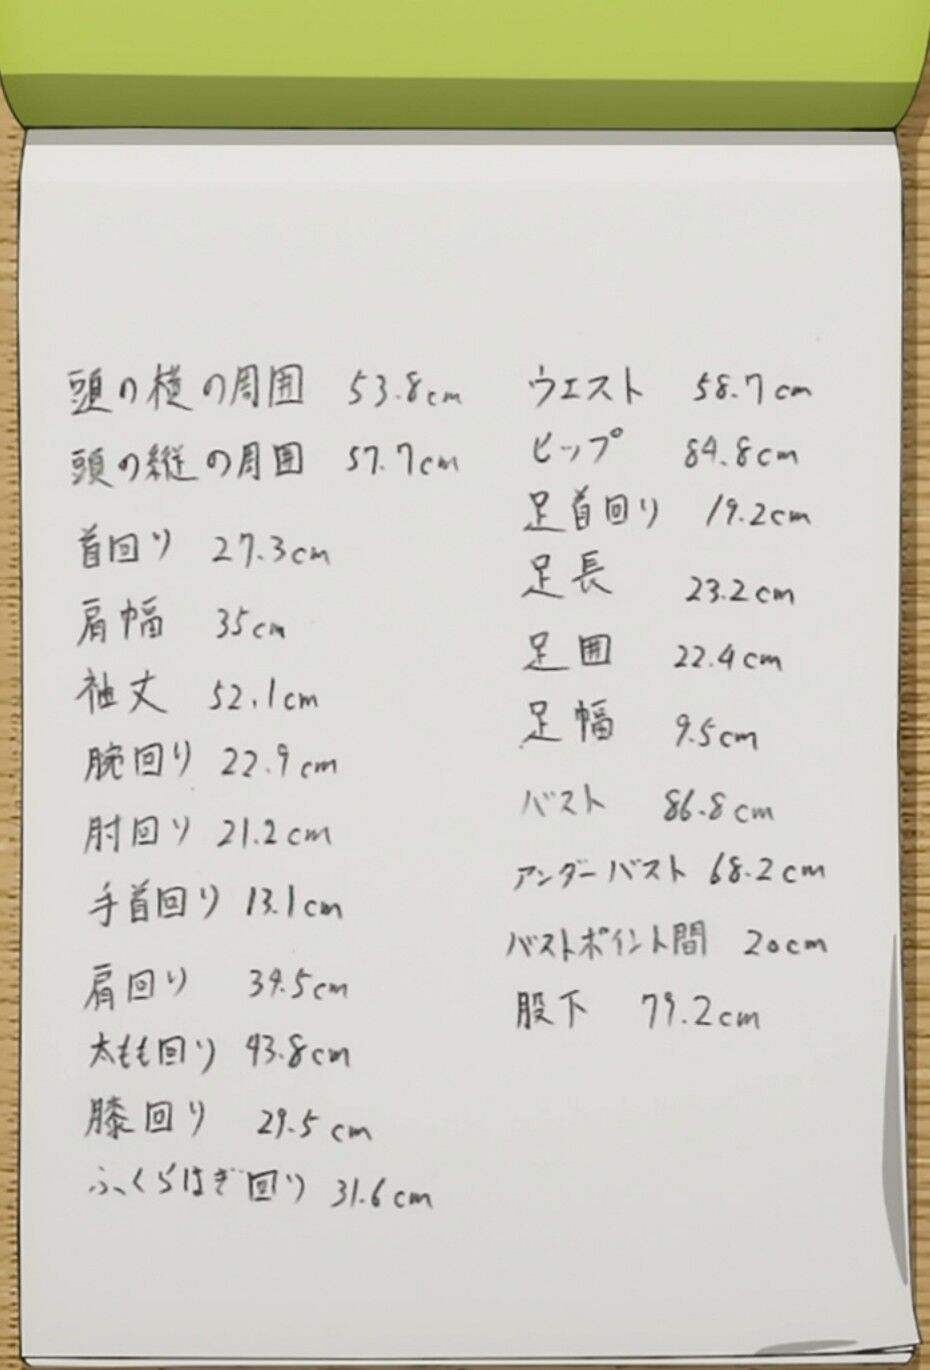 頭の横の周囲 53.8cm
頭の縦の周囲 57.7cm
首回り 27.3cm
肩幅 35cm
袖丈 52.1cm
腕回り 22.9cm
肘回り 21.2cm
手首回り 13.1cm
肩回り 39.5cm
太もも回り 43.8cm
膝回り 29.5cm
ふくらはぎ回り 31.6cm
ウエスト 58.7cm
ヒップ 84.8cm
足首回り 19.2cm
足長 23.2cm
足囲 22.4cm
足幅 9.5cm
バスト 86.8cm
アンダーバスト 68.2cm
バストポイント間 20cm
股下 79.2cm